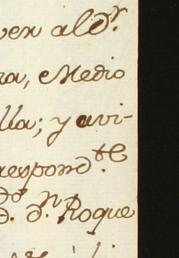 ven al d.r
ra, Medio
lla; y avi-
respond.te
d.n Roque